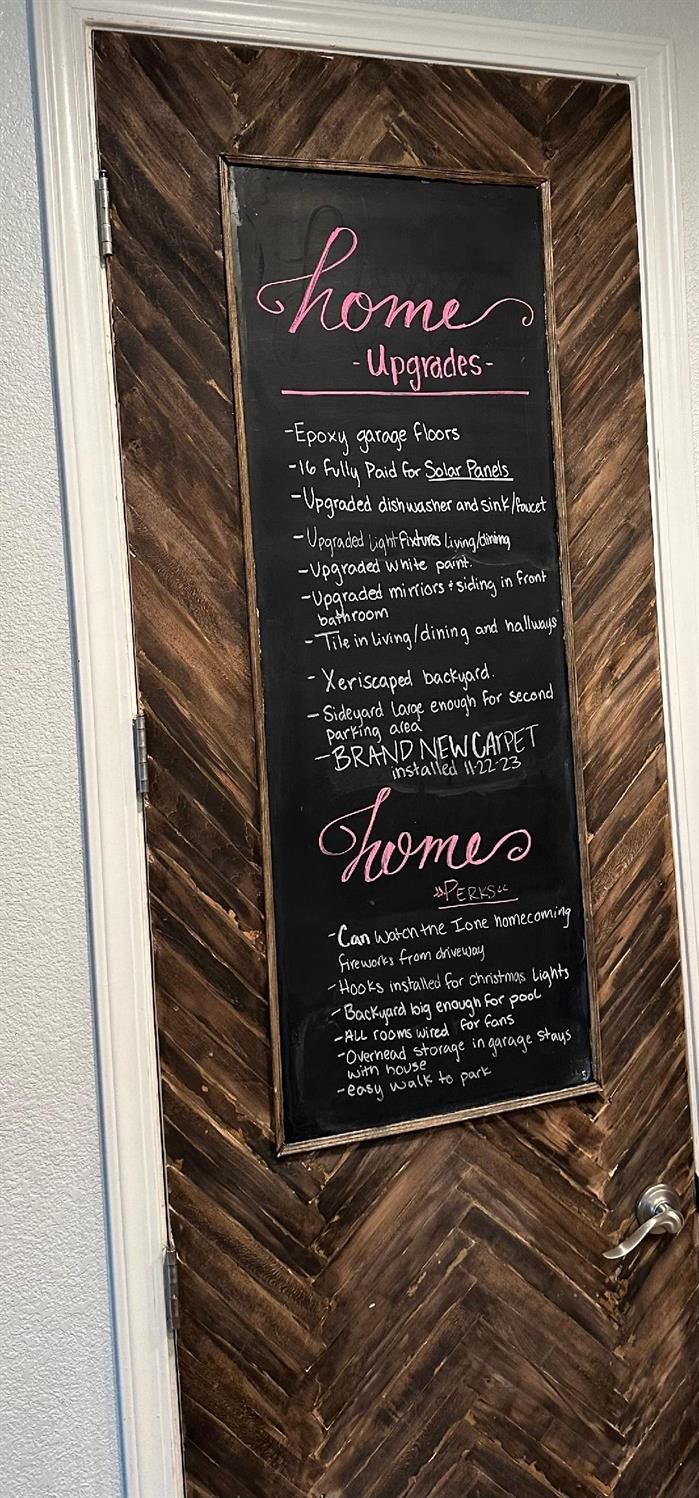 home
- Upgrades -
- Epoxy garage floors
- 16 Fully Paid for Solar Panels
- Upgraded dishwasher and sink/faucet
- Upgraded Light fixtures living/dining
- Upgraded white paint.
- Upgraded mirriors + siding in front
bathroom
- Tile in living/dining and hallways
- Xeriscaped backyard.
- Sideyard large enough for second
parking area
- BRAND NEW CARPET
installed 11-22-23
home
"PERKS"
- Can watch the Ione homecoming
fireworks from driveway
- Hooks installed for christmas Lights
- Backyard big enough for pool
- ALL rooms wired for fans
- Overhead storage in garage stays
with house
- easy walk to park